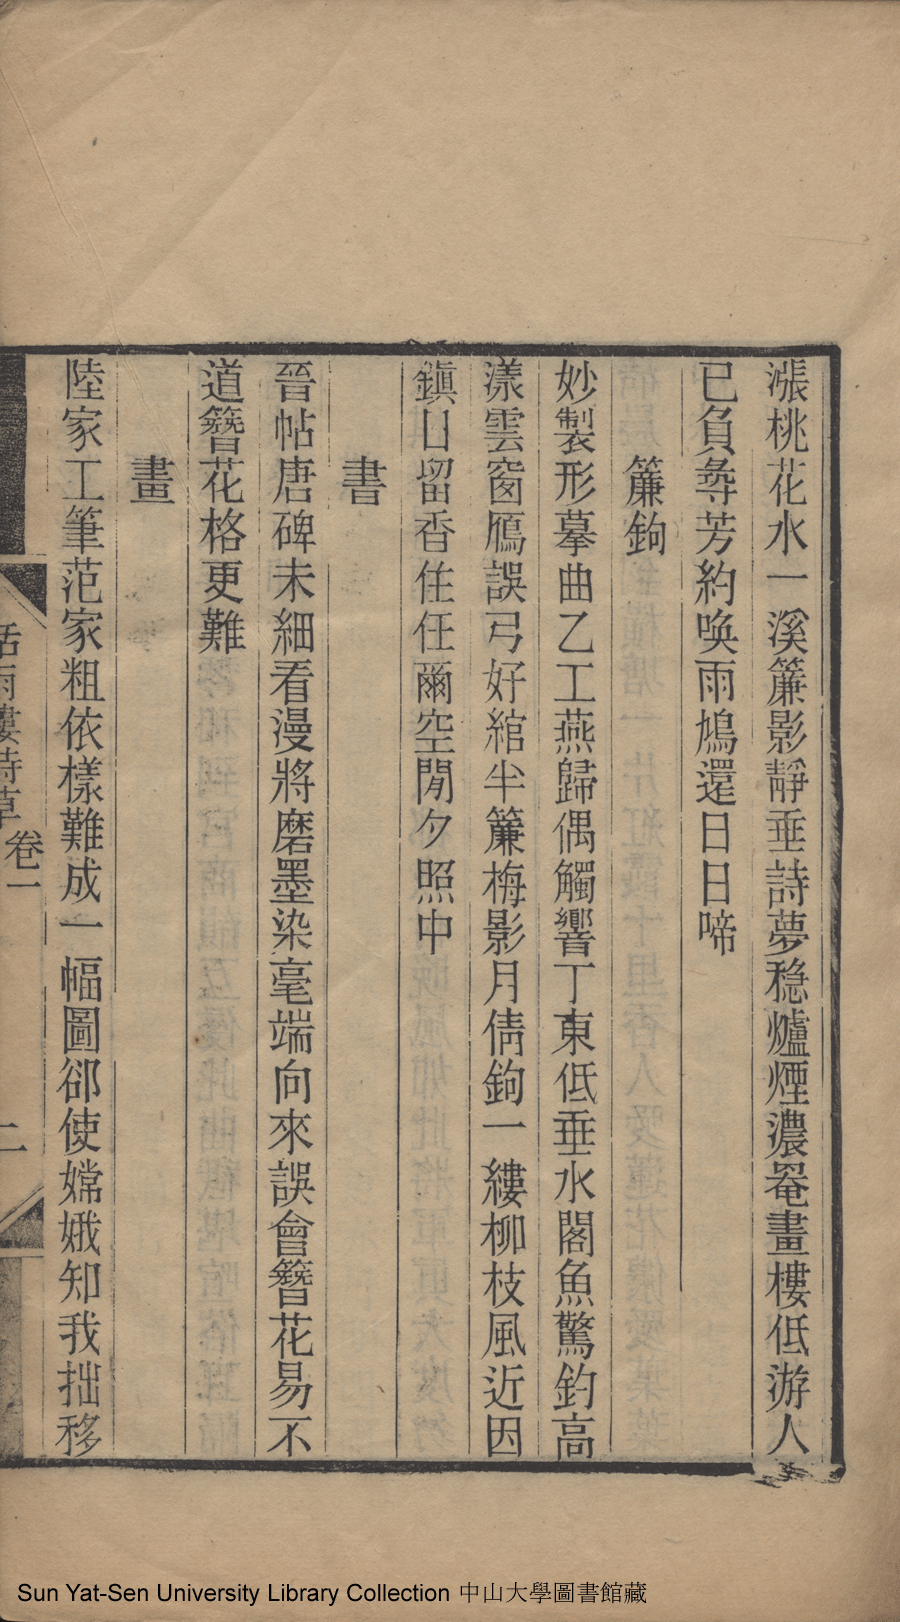 漲桃花水一溪簾影靜垂詩夢稳爐煙濃罨畫樓低游人
已負尋芳約喚雨鳩還日日啼
簾鉤
妙製形摹曲乙工燕歸偶觸響丁東低垂水閣魚驚釣高
漾雲窗鴈誤弓好綰半簾梅影月倩鉤一縷柳枝風近因
鎮日留香住任爾空閒夕照中
書
晉帖唐碑未細看漫將磨墨染毫端向來誤會簪花易不
道簪花格更難
畫
陸家工筆范家粗依樣難成一幅圖郤使嫦娥知我拙移
雨樓詩草
卷一
二
Sun Yat-Sen University Library Collection 中山大學圖書館藏